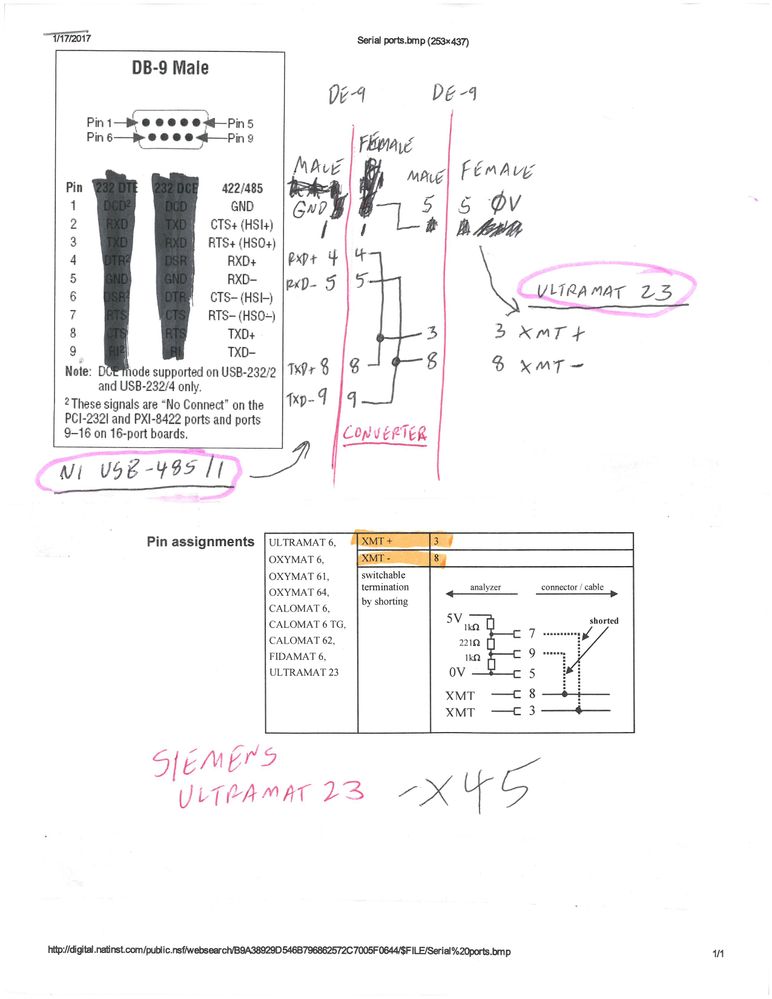 1/17/2017
Serial ports.bmp (253×437)
DB-9 Male
Pin 1
Pin 5
Pin 6
Pin 9
Pin 232 DTE 232 DCE 422/485
1 DCD² DCD GND
2 RXD TXD CTS+ (HSI+)
3 TXD RXD RTS+ (HSO+)
4 DTR² DSR RXD+
5 GND GND RXD–
6 DSR² DTR CTS– (HSI–)
7 RTS CTS RTS– (HSO–)
8 CTS RTS TXD+
9 RI² RI TXD–
Note: DCE mode supported on USB-232/2
and USB-232/4 only.
² These signals are “No Connect” on the
PCI-232I and PXI-8422 ports and ports
9–16 on 16-port boards.
NI USB-485/1
DE-9 DE-9
MALE FEMALE MALE FEMALE
GND 5 5 ØV
1 1
RXD+ 4 4
RXD- 5 5
3
8
TXD+ 8 8
TXD- 9 9
CONVERTER
ULTRAMAT 23
3 XMT +
8 XMT -
Pin assignments
ULTRAMAT 6,
OXYMAT 6,
OXYMAT 61,
OXYMAT 64,
CALOMAT 6,
CALOMAT 6 TG,
CALOMAT 62,
FIDAMAT 6,
ULTRAMAT 23
XMT + 3
XMT - 8
switchable
termination
by shorting
analyzer connector / cable
5V
1kΩ
221Ω
1kΩ
0V
7
9
5
XMT 8
XMT 3
shorted
SIEMENS
ULTRAMAT 23 -X45
http://digital.natinst.com/public.nsf/websearch/B9A38929D546B796862572C7005F0644/$FILE/Serial%20ports.bmp
1/1